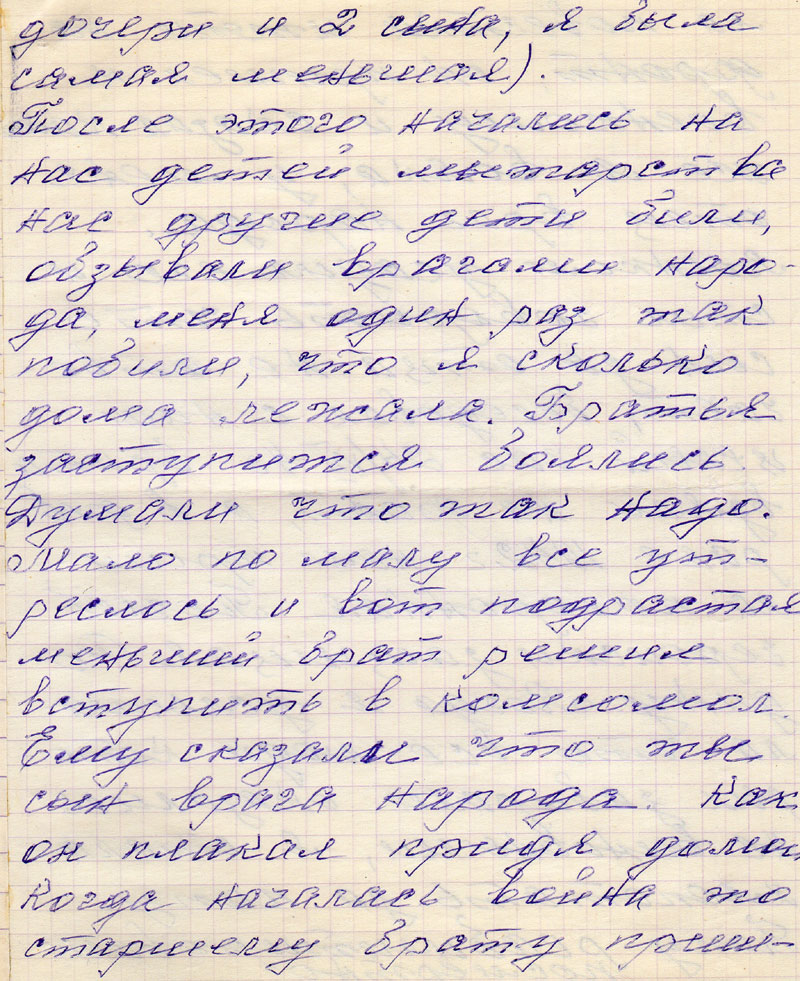 дочери и 2 сына, я была
самая меньшая).
После этого начались на
нас детей мытарства
нас другие дети били,
обзывали врагами наро-
да, меня один раз так
побили, что я сколько
дома лежала. Братья
заступится боялись.
Думали что так надо.
Мало по малу все ут-
реслось и вот подрастая
меньший брат решил
вступить в комсомол.
Ему сказали что ты
сын врага народа. Как
он плакал придя домой,
когда началась война то
старшему брату приш-